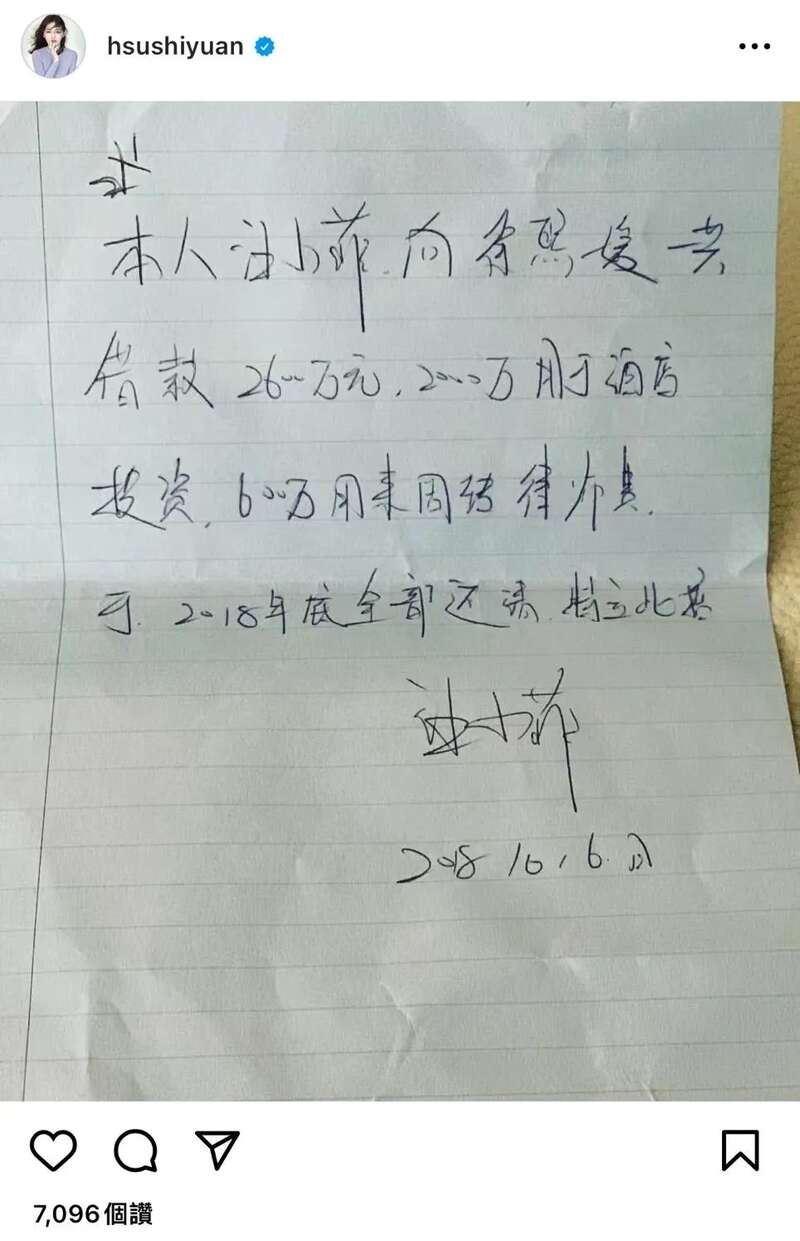 hsushiyuan
本人汪小菲.向徐熙媛共
借款2600万元,2000万用于酒店
投资,600万用来周转律师费.
于.2018年底全部还清.特立此据
汪小菲
2018 10,6.
7,096個讚